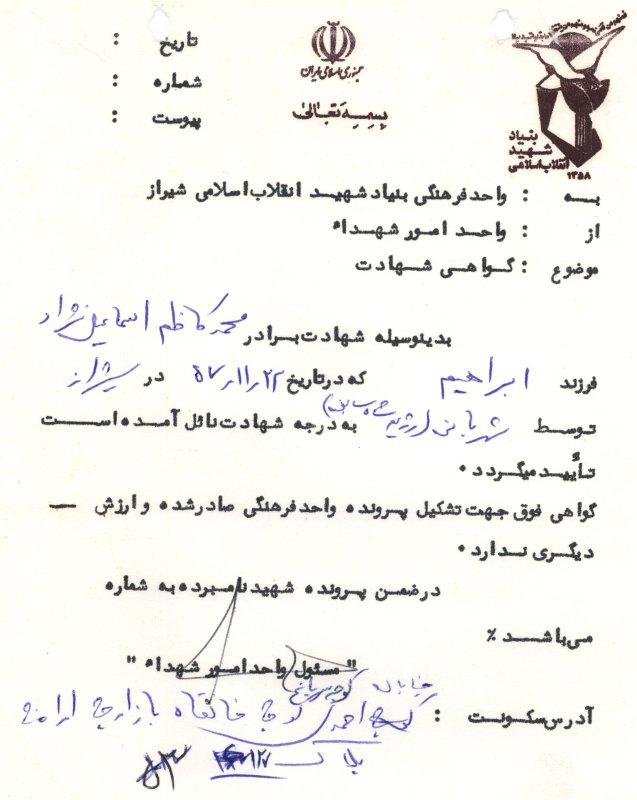 تاریخ :
شماره :
پیوست :
جمهوری اسلامی ایران
بسمه تعالی
بنیاد
شهید
انقلاب اسلامی
۱۳۵۸
بــه : واحد فرهنگی بنیاد شهید انقلاب اسلامی شیراز
از : واحد امور شهداء
موضوع : گواهی شهادت
بدینوسیله شهادت برادر محمد کاظم اسماعیل نژاد
فرزند ابراهیم که درتاریخ ۵۷/۱۱/۲۲ در شیراز
توسط شهربانی (رژیم سابق) به درجه شهادت نائل آمده است
تأیید میگردد ۰
گواهی فوق جهت تشکیل پرونده واحد فرهنگی صادر شده و ارزش
دیگری ندارد ۰
درضمن پرونده شهید نامبرده به شماره
می‌باشد ٪
" مسئول واحد امور شهداء "
خیابان
آدرس سکونت : احمدی کوچه خانقاه بازارچه
پلاک